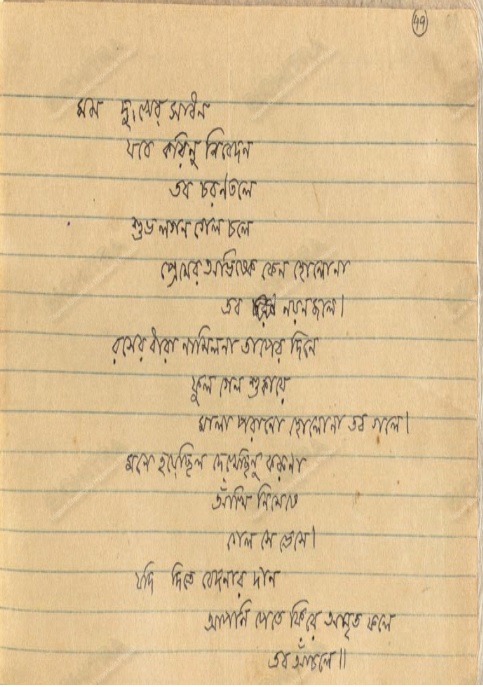 ৭৭
মম দুঃখের সাধন
যবে করিনু নিবেদন
তব চরণতলে
শুভ লগন গেল চলে
প্রেমের অভিষেক কেন হোলোনা
তব নয়নজলে।
রসের ধারা নামিলনা তাপের দিনে
ফুল গেল শুকায়ে
মালা পরানো হোলোনা তব গলে।
মনে হয়েছিল দেখেছিনু করুণা
আঁখি নিমেষে
গেল সে ভেসে।
যদি দিতে বেদনার দান
আপনি পেতে ফিরে অমৃত ফলে
তব আঁচলে॥